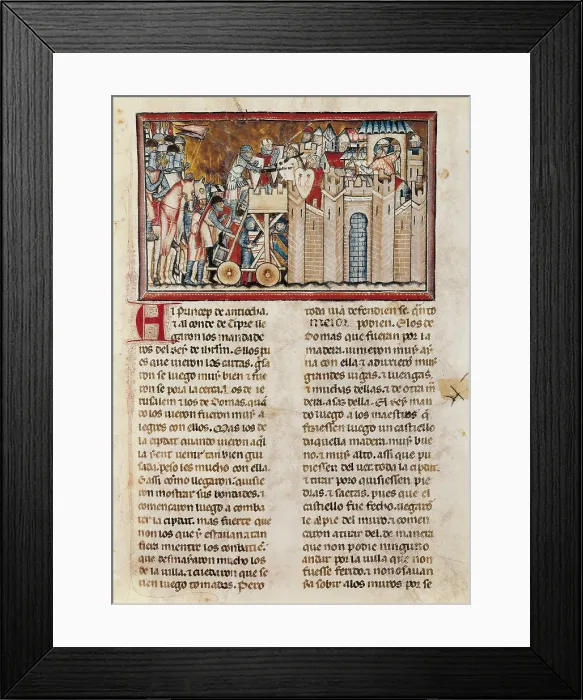 Al Princep de antiocha.
⁊ al conde de Cipre lle
garon los mandade
ros del Rey de iherlm. Ellos pu
es que uieron las cartas.
ron se luego muy bien ⁊ fue
ron se pora la cerca. Los de ie
rusalem ⁊ los de Domas. quan
do los uieron fueron muy a
legres con ellos. Mas los de
la cipdat quando uieron aql
la yent uenir tan bien gui
sada. peso les mucho con ella.
E assi como llegaron. quisie
ron mostrar sus bondades. ⁊
començaron luego a comba
ter la cipdat. mas fuerte que
non los que y estauan atan
fiera mientre los conbatie
que desmayaron mucho los
de la uilla. ⁊ cuedaron que se
rien luego tomados. Pero
toda uia defendien se. qnto
meior podien. E los de
Domas que fueran por la
madera. uinieron muy ay
na con ella ⁊ aduxieron muy
grandes uigas. ⁊ luengas.
⁊ muchas dellas. ⁊ de otra m
dera. assaz della. El Rey man
do luego a los maestros q
fiziessen luego un castiello
daquella madera. muy bue
no. ⁊ muy alto. assi que pu
diessen del uer. toda la cipdat.
⁊ tirar y quisiessen pie
dras. ⁊ saetas. pues que el
castiello fue fecho. llegaron
le al pie del muro. ⁊ comen
çaron a tirar del. de manera
que non podie ninguno
andar por la uilla que non
fuesse ferido. ⁊ non osauan
sobir a los muros por se